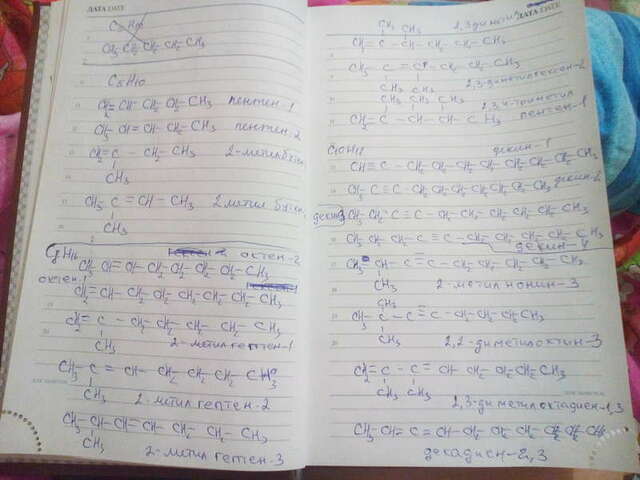 ДАТА DATE
C5H10
CH3 CH2 CH2 CH2 CH3
C5H10
CH2=CH-CH2-CH2-CH3 пентен-1
CH3 CH=CH-CH2-CH3 пентен-2
CH2=C - CH2-CH3 2-метил
CH3
CH3 C = CH-CH3 2 метил
CH3
C8H16 октен-2
CH3 CH=CH-CH2-CH2-CH2-CH2-CH3
октен
CH2=CH-CH2-CH2-CH2-CH2-CH2-CH3
CH2=C - CH2-CH2-CH2-CH2-CH3
CH3 2-метил гептен-1
CH3-C = CH-CH2-CH2-CH2-CH3
CH3 2-метил гептен-2
CH3 CH-CH=CH-CH2-CH2-CH3
CH3 2-метил гептен-3
ДАТА DATE
CH3 CH3 2,3-диметил
CH2=C - CH-CH2-CH2-CH3
CH3 C = C - CH2-CH2-CH3
CH3 CH3 2,3-диметилгексен-2
CH3 CH3 CH3 2,3,4-триметил
CH2=C - CH-CH-CH3 пентен-1
C10H18 декин-1
CH≡C-CH2-CH2-CH2-CH2-CH2-CH2-CH2-CH3
CH3-C≡C-CH2-CH2-CH2-CH2-CH2-CH2-CH3 декин-2
декин3 CH3 CH2 C≡C-CH2-CH2-CH2-CH2-CH2-CH3
CH3 CH2 CH2 C≡C-CH2-CH2-CH2-CH2-CH3
декин-4
CH3 CH-C≡C-CH2-CH2-CH2-CH2-CH3
CH3 2-метил нонин-3
CH3
CH3-C-C≡C-CH2-CH2-CH2-CH3
CH3 2,2-диметилоктин-3
CH2=C - C = CH-CH2-CH2-CH2-CH3
CH3 CH3 2,3-диметилоктадиен-1,3
CH3 CH=C=CH-CH2-CH2-CH2-CH2-CH2-CH3
декадиен-2,3